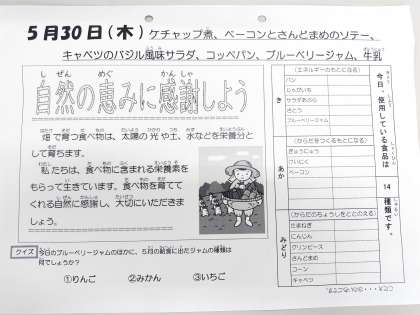 5月30日(木)ケチャップ煮、ベーコンとさんどまめのソテー、
キャベツのバジル風味サラダ、コッペパン、ブルーベリージャム、牛乳
自然の恵みに感謝しよう
畑で育つ食べ物は、太陽の光や土、水などを栄養分と
して育ちます。
私たちは、食べ物に含まれる栄養素を
もらって生きています。食べ物を育てて
くれる自然に感謝し、大切にいただきま
しょう。
クイズ
今日のブルーベリージャムのほかに、5月の給食に出たジャムの種類は
何でしょうか?
①りんご ②みかん ③いちご
今日、使用している食品は
14
種類です。
き
(エネルギーのもとになる)
パン
じゃがいも
サラダあぶら
さとう
ブルーベリージャム
あか
(からだをつくるもとになる)
ぎゅうにゅう
けいにく
ベーコン
みどり
(からだのちょうしをととのえる)
たまねぎ
にんじん
グリンピース
さんどまめ
コーン
キャベツ